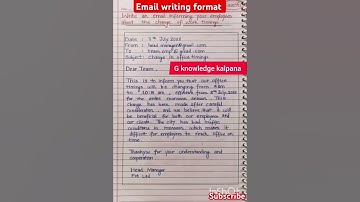 Email writing format
Write an email informing your employees
about the change of work timings.
Date : 7th July 2022
From : head.manager@gmail.com
To : team.emp@gmail.com
Subject: Change in office timings
G knowledge kalpana
Dear Team,
This is to inform you that our office
timings will be changing from 9am
to 10 am , effective from 8th July 2022
for the entire monsoon season. This
change has been made after careful
consideration, and we believe that it will
be beneficial for both our employees and
our clients. The city has bad traffic
conditions in monsoon, which makes it
difficult for employees to reach office on
time.
Thankyou for your understanding and
cooperation
Head Manager
Pvt Ltd
Subscribe